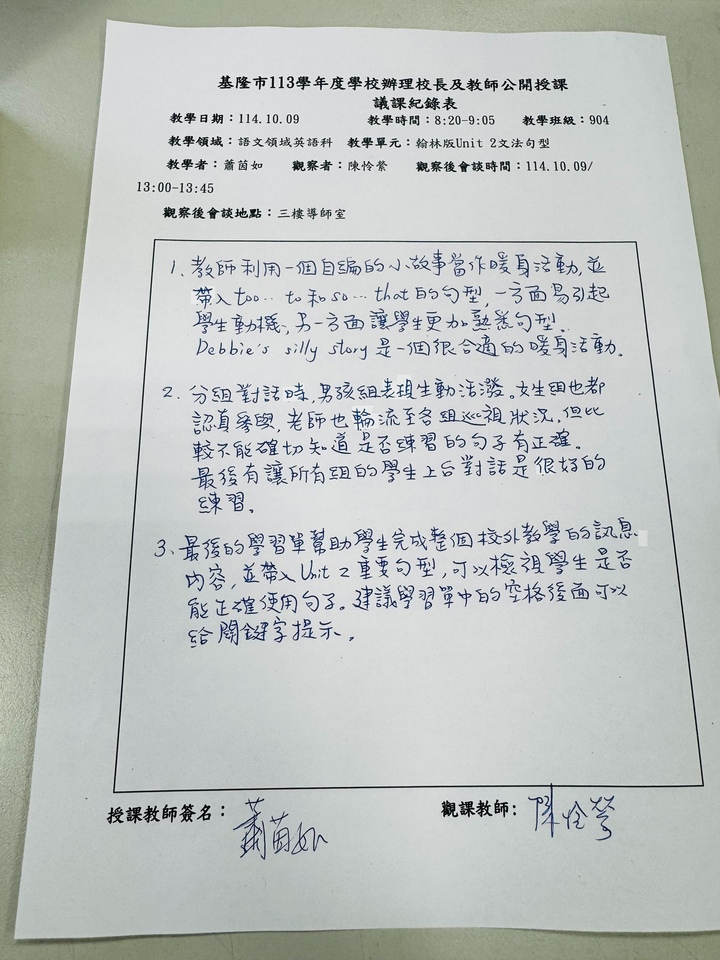 基隆市113學年度學校辦理校長及教師公開授課
議課紀錄表
教學日期：114.10.09 教學時間：8:20-9:05 教學班級：904
教學領域：語文領域英語科 教學單元：翰林版Unit 2文法句型
教學者：蕭茵如 觀察者：陳怜縈 觀察後會談時間：114.10.09/
13:00-13:45
觀察後會談地點：三樓導師室
1、教師利用一個自編的小故事當作暖身活動，並
帶入too… to和so… that的句型，一方面易引起
學生動機，另一方面讓學生更加熟悉句型。
Debbie's silly story 是一個很合適的暖身活動。
2. 分組對話時，男孩組表現生動活潑。女生組也都
認真參與，老師也輪流至各組巡視狀況，但比
較不能確切知道是否練習的句子有正確。
最後有讓所有組的學生上台對話是很好的
練習。
3、最後的學習單幫助學生完成整個校外教學的訊息
內容，並帶入Unit 2重要句型，可以檢視學生是否
能正確使用句子。建議學習單中的空格後面可以
給關鍵字提示。
授課教師簽名： 蕭茵如 觀課教師: 陳怜縈